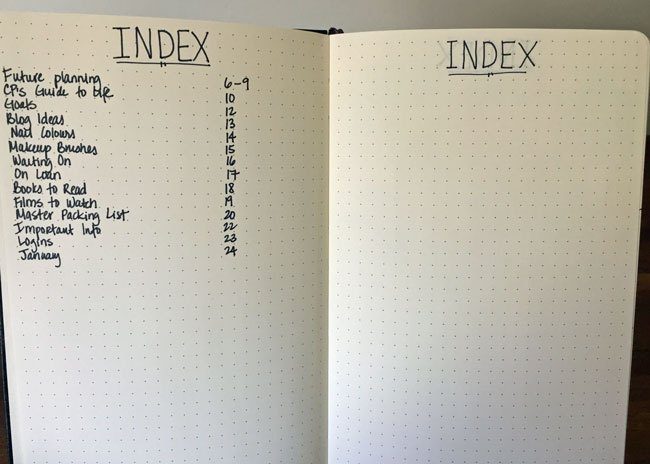 INDEX
Future planning 6-9
CP's Guide to Life 10
Goals 12
Blog Ideas 13
Nail Colours 14
Makeup Brushes 15
Waiting On 16
On Loan 17
Books to Read 18
Films to Watch 19
Master Packing List 20
Important Info 22
Logins 23
January 24
INDEX